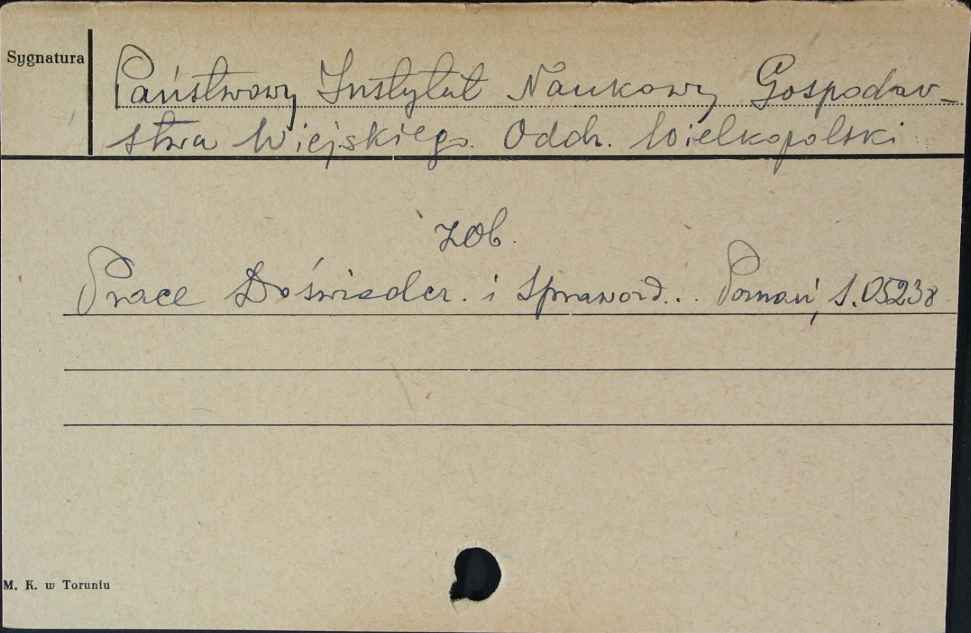 Sygnatura
Państwowy Instytut Naukowy Gospodar-
stwa Wiejskiego. Oddz. Wielkopolski
zob.
Prace Doświadcz. i Sprawozd... Poznań, S.05238
M. K. w Toruniu